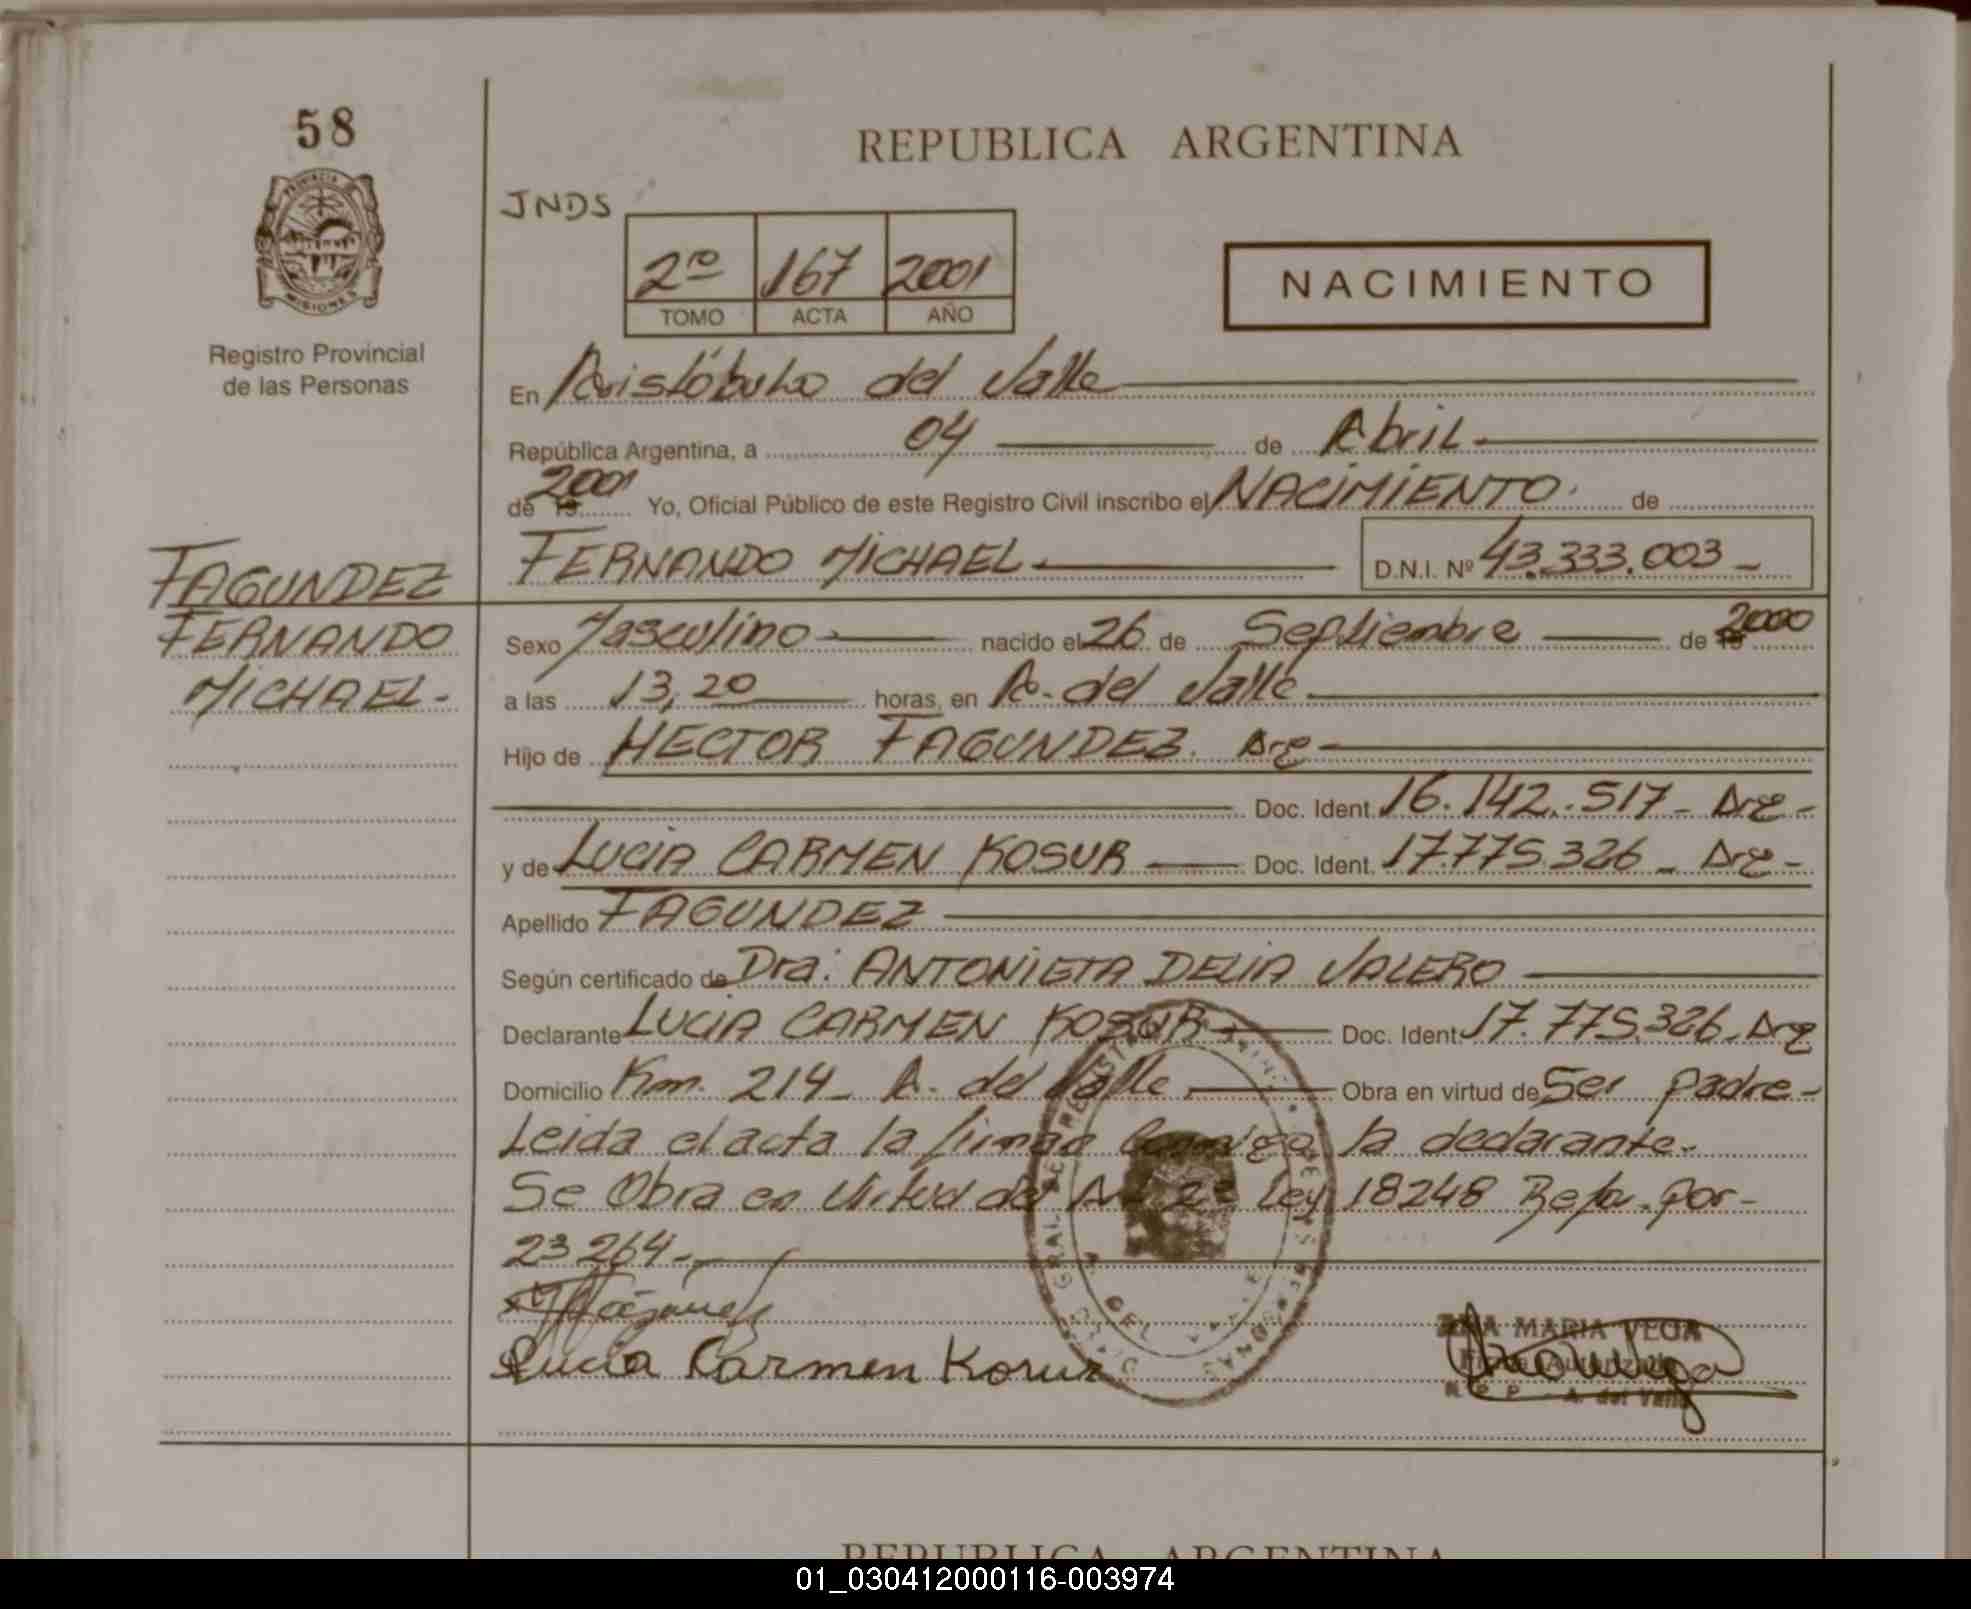 58
REPUBLICA ARGENTINA
PROVINCIA DE
MISIONES
JNDS
2ro 167 2001
TOMO ACTA AÑO
NACIMIENTO
Registro Provincial
de las Personas
En Aristóbulo del Valle
República Argentina, a 04 de Abril
de 19 2001 Yo, Oficial Público de este Registro Civil inscribo el NACIMIENTO. de
FERNANDO MICHAEL D.N.I. Nº 43.333.003
FAGUNDEZ
FERNANDO
MICHAEL-
Sexo Masculino nacido el 26 de Septiembre de 19 2000
a las 13,20 horas, en A. del Valle
Hijo de HECTOR FAGUNDEZ. Arg
Doc. Ident. 16.142.517- Arg-
y de LUCIA CARMEN KOSUR Doc. Ident. 17.775.326- Arg-
Apellido FAGUNDEZ
Según certificado de Dra: ANTONIETA DELIA VALERO
Declarante LUCIA CARMEN KOSUR Doc. Ident. 17.775.326. Arg
Domicilio Km. 214- A. del Valle Obra en virtud de Ser padre-
Leida el acta la firman conmigo la declarante-
Se Obra en virtud del Art 2º Ley 18248 por-
23264-
Lucia Carmen Kosur
ANA MARIA VEGA
Firma Autorizada
R. P. P. A. del Valle
A. DEL VALLE
REPUBLICA ARGENTINA
01_030412000116-003974